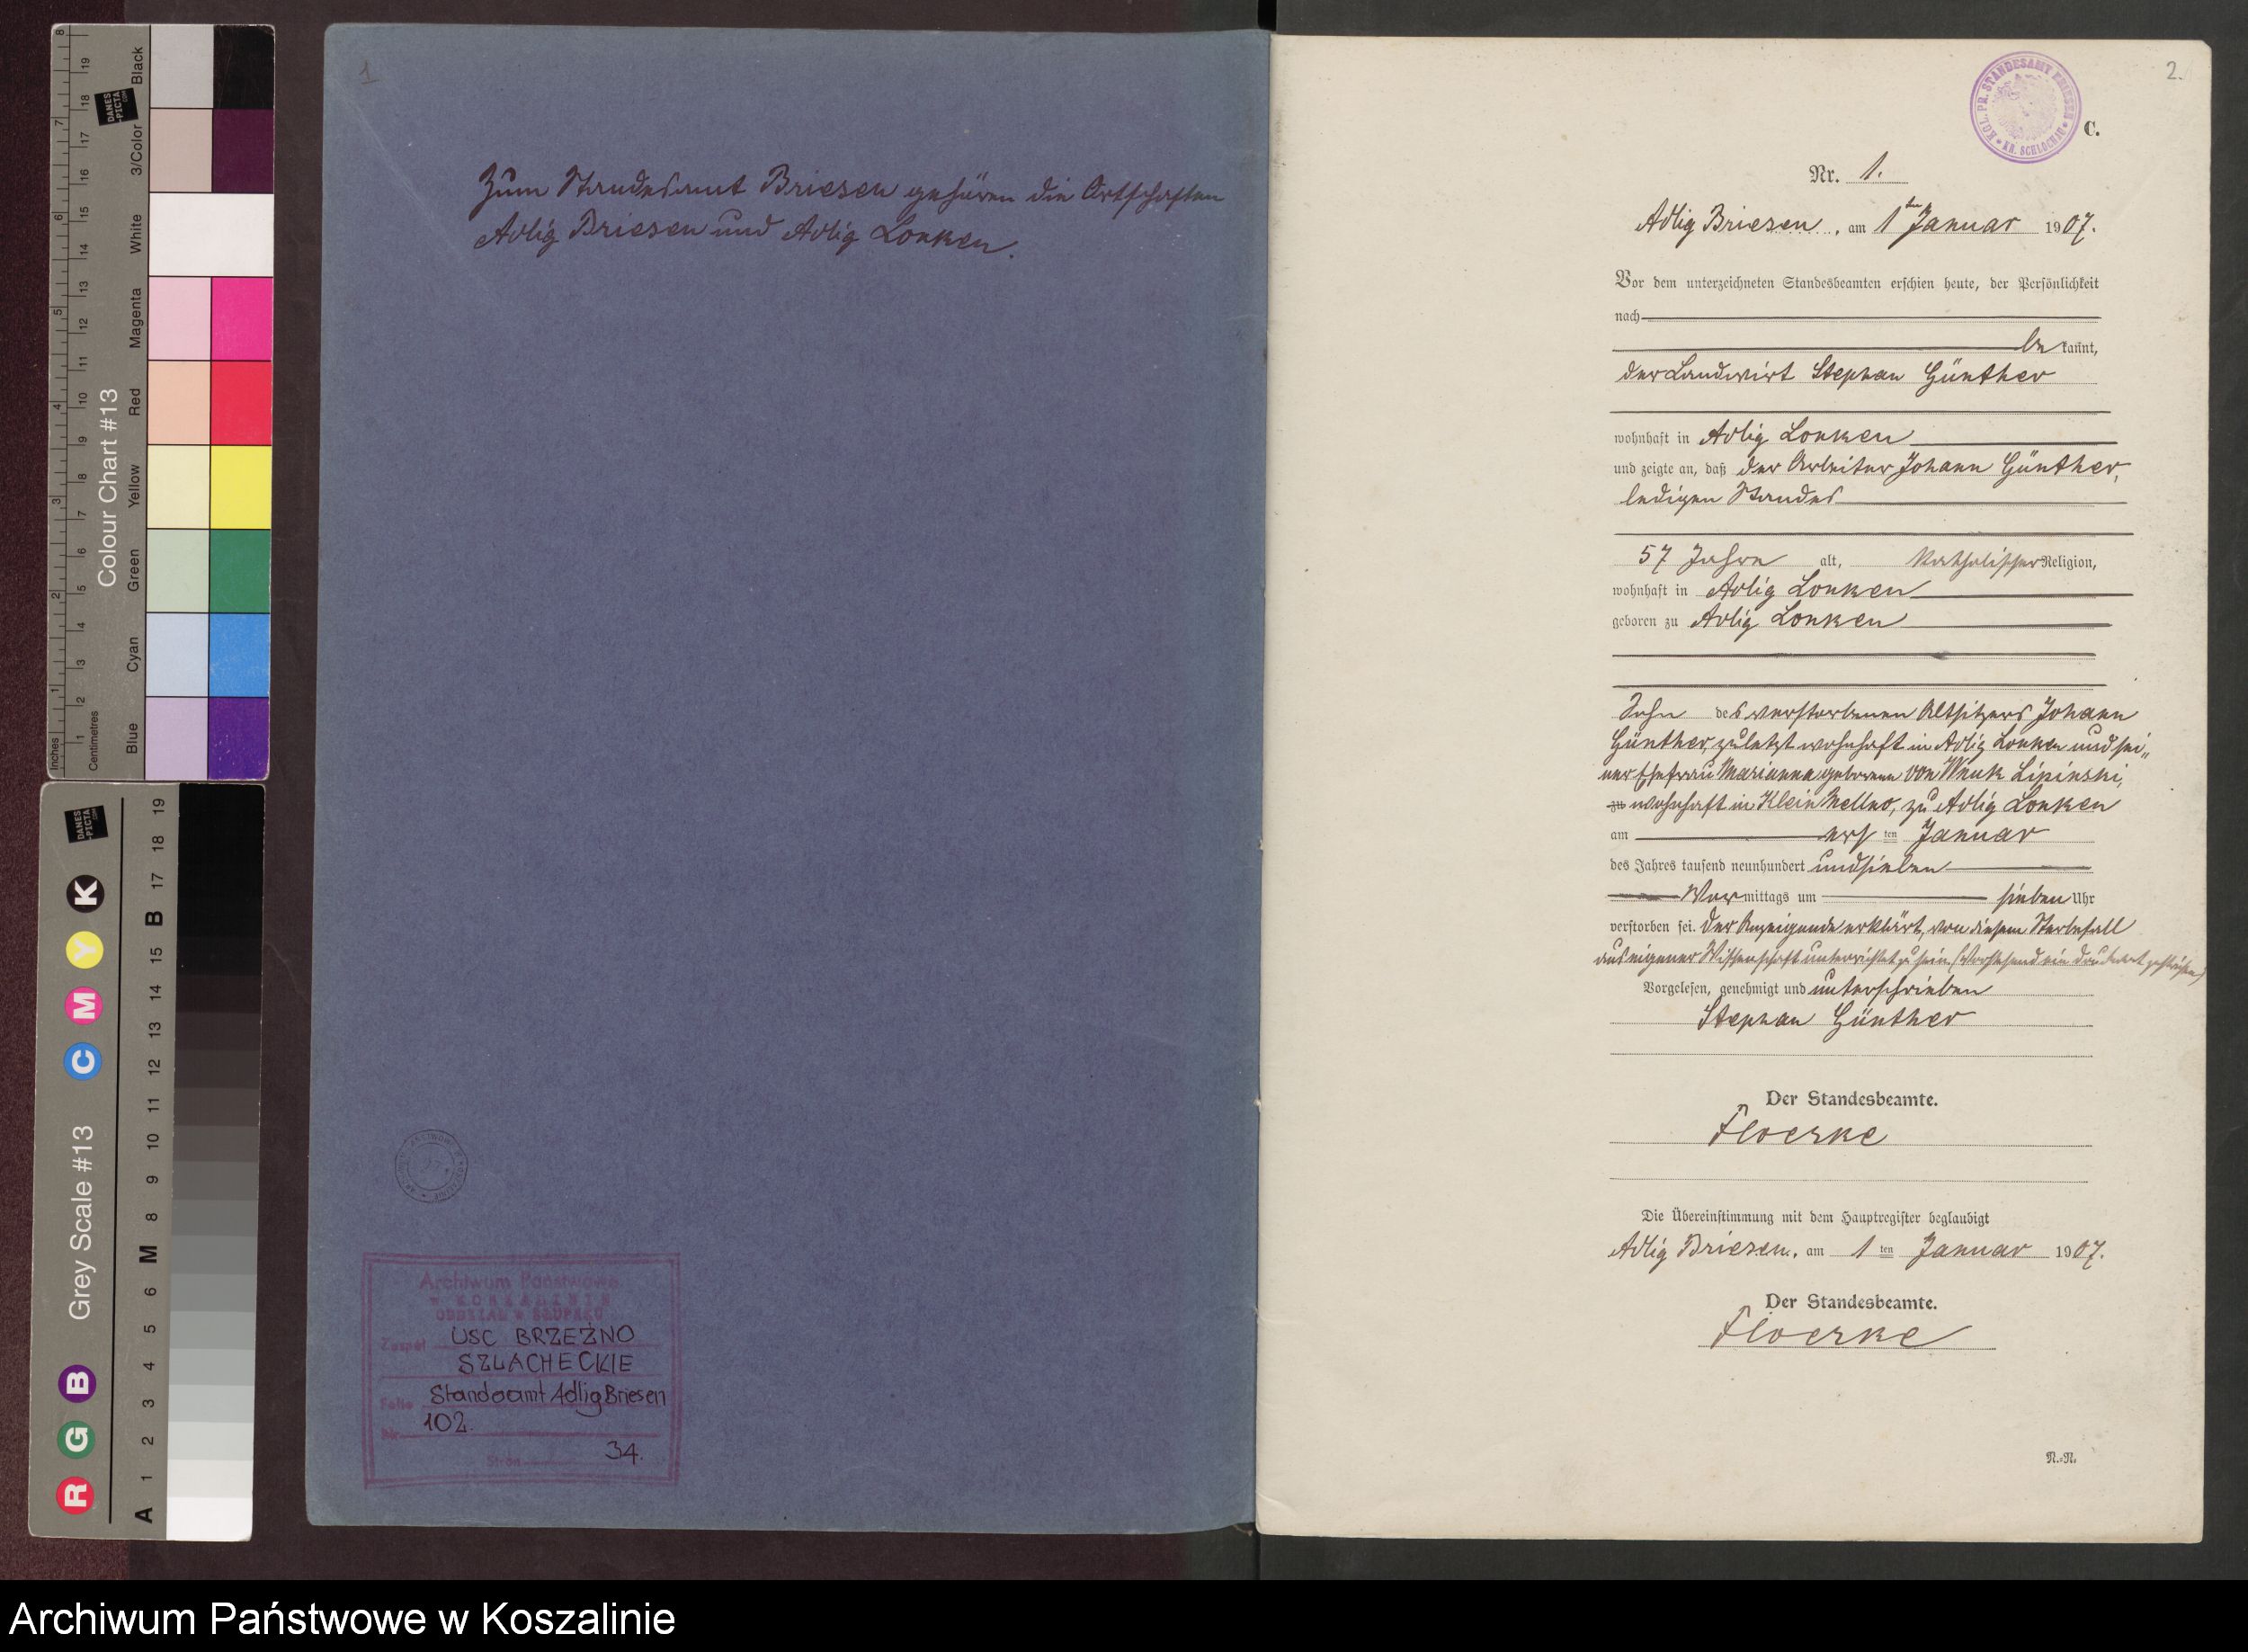 1
Zum Standesamt Briesen gehören die Ortschaften
Adlig Briesen und Adlig Lonken.
Archiwum Państwowe
w KOSZALINIE
ODDZIAŁ w SŁUPSKU
Zespół USC BRZEŹNO
SZLACHECKIE
Standesamt Adlig Briesen
Nr. 102.
Stron 34.
2.
KGL. PR. STANDESAMT BRIESEN
KR. SCHLOCHAU
C.
Nr. 1.
Adlig Briesen, am 1ten Januar 1907.
Vor dem unterzeichneten Standesbeamten erschien heute, der Persönlichkeit
nach
be kannt,
der Landwirt Stephan Günther
wohnhaft in Adlig Lonken
und zeigte an, daß der Arbeiter Johann Günther,
ledigen Standes
57 Jahre alt, katholischer Religion,
wohnhaft in Adlig Lonken
geboren zu Adlig Lonken
Sohn des verstorbenen Altsitzers Johann
Günther, zuletzt wohnhaft in Adlig Lonken und sei„
ner Ehefrau Marianna geborene von Wnuk Lipinski,
zu wohnhaft in Klein Mellno, zu Adlig Lonken
am ersten Januar
des Jahres tausend neunhundert und sieben
Vormittags um sieben Uhr
verstorben sei. Der Anzeigende erklärt, von diesem Sterbefall
aus eigener Wissenschaft unterrichtet zu sein. (Vorstehend ein Druckwort gestrichen)
Vorgelesen, genehmigt und unterschrieben
Stephan Günther
Der Standesbeamte.
Floerke
Die Übereinstimmung mit dem Hauptregister beglaubigt
Adlig Briesen, am 1ten Januar 1907.
Der Standesbeamte.
Floerke
N.-N.
Colour Chart #13
Black
3/Color
White
Magenta
Red
Yellow
Green
Cyan
Blue
Inches
Centimetres
DANES
PICTA
.COM
Grey Scale #13
R G B C M Y K
A 1 2 3 4 5 6 M 8 9 10 11 12 13 14 15 B 17 18 19
Archiwum Państwowe w Koszalinie